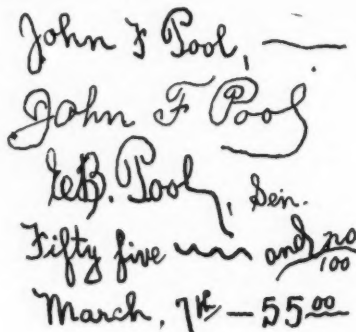 John F Pool,
John F Pool
W.B. Pool, Sen.
Fifty five and no/100
March, 7th — 55.00